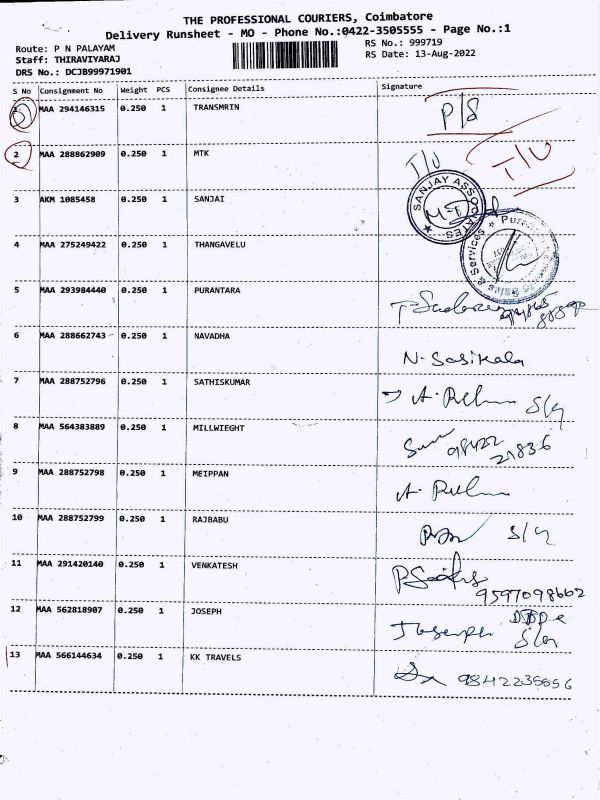 THE PROFESSIONAL COURIERS, Coimbatore
Delivery Runsheet - MO - Phone No.:0422-3505555 - Page No.:1
Route: P N PALAYAM
RS No.: 999719
Staff: THIRAVIYARAJ
RS Date: 13-Aug-2022
DRS No.: DCJB99971901
S No Consignment No Weight PCS Consignee Details Signature
1 MAA 294146315 0.250 1 TRANSMRIN P/S
2 MAA 288862909 0.250 1 MTK I/U I/U
3 AKM 1085458 0.250 1 SANJAI SANJAY ASSOCIATES
4 MAA 275249422 0.250 1 THANGAVELU
5 MAA 293984440 0.250 1 PURANTARA
6 MAA 288662743 0.250 1 NAVADHA N. Sasikala
7 MAA 288752796 0.250 1 SATHISKUMAR
8 MAA 564383889 0.250 1 MILLWIEGHT 98422 21836
9 MAA 288752798 0.250 1 MEIPPAN
10 MAA 288752799 0.250 1 RAJBABU
11 MAA 291420140 0.250 1 VENKATESH 9597098602
12 MAA 562818907 0.250 1 JOSEPH Joseph
13 MAA 566144634 0.250 1 KK TRAVELS 9842235056